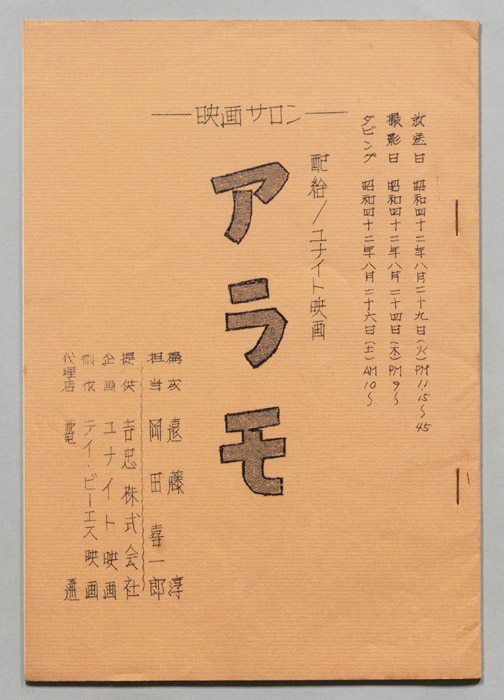 放送日 昭和四十二年八月二十九日(火)PM11.15〜45
撮影日 昭和四十二年八月二十四日(木)PM9〜
ダビング 昭和四十二年八月二十六日(土)AM10〜
配給/ユナイト映画
—映画サロン—
アラモ
構成 遠藤 淳
担当 岡田喜一郎
提供 吉忠株式会社
企画 ユナイト映画
制作 テイ・ビーエス映画
代理店 電通